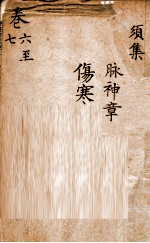 須集
脉神章
傷寒
卷六至
七